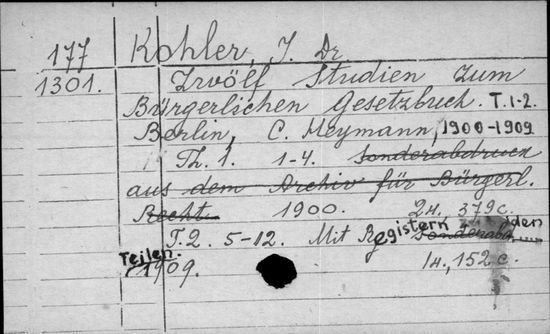 177 Kohler, J. Dr
1301. Zwölf Studien zum
Bürgerlichen Gesetzbuch. T. 1-2.
Berlin, C. Heymann, 1900-1909
Th. 1. 1-4. Sonderabdruck
aus dem Archiv für Bürgerl.
Recht. 1900. 2 н., 379 с.
T. 2. 5-12. Mit Registern
Teilen. 1909.
1 н., 152 с.